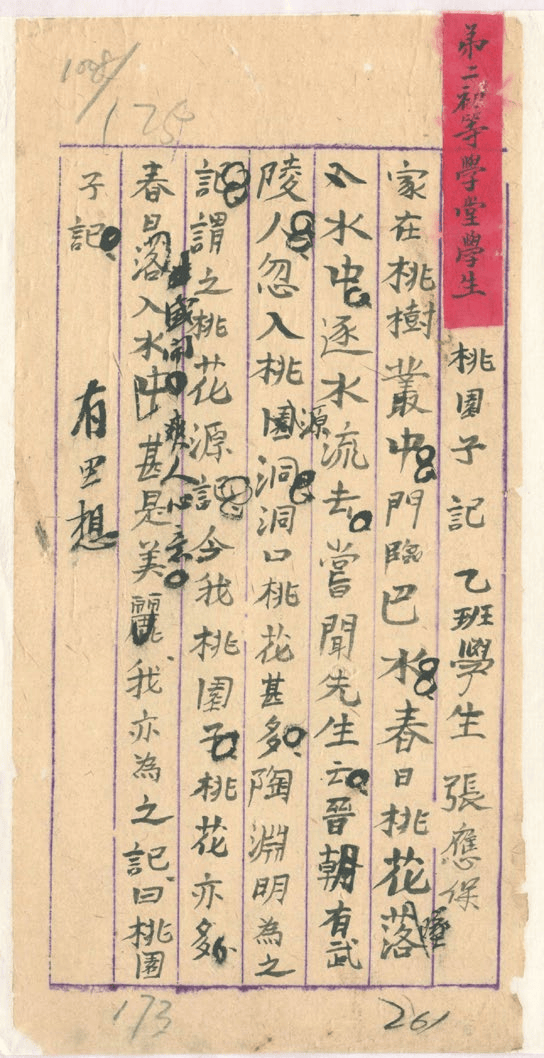 第二初等學堂學生
桃園子記 乙班學生 張應保
家在桃樹叢中門臨巴水春日桃花落
墜
入水中逐水流去嘗聞先生云晉朝有武
陵人忽入桃園洞洞口桃花甚多陶淵明為之
源
記謂之桃花源記今我桃園子桃花亦多
盛開 爽人心意
春日落入水中甚是美麗我亦為之記曰桃園
子記
有思想
1008/
175
173
261